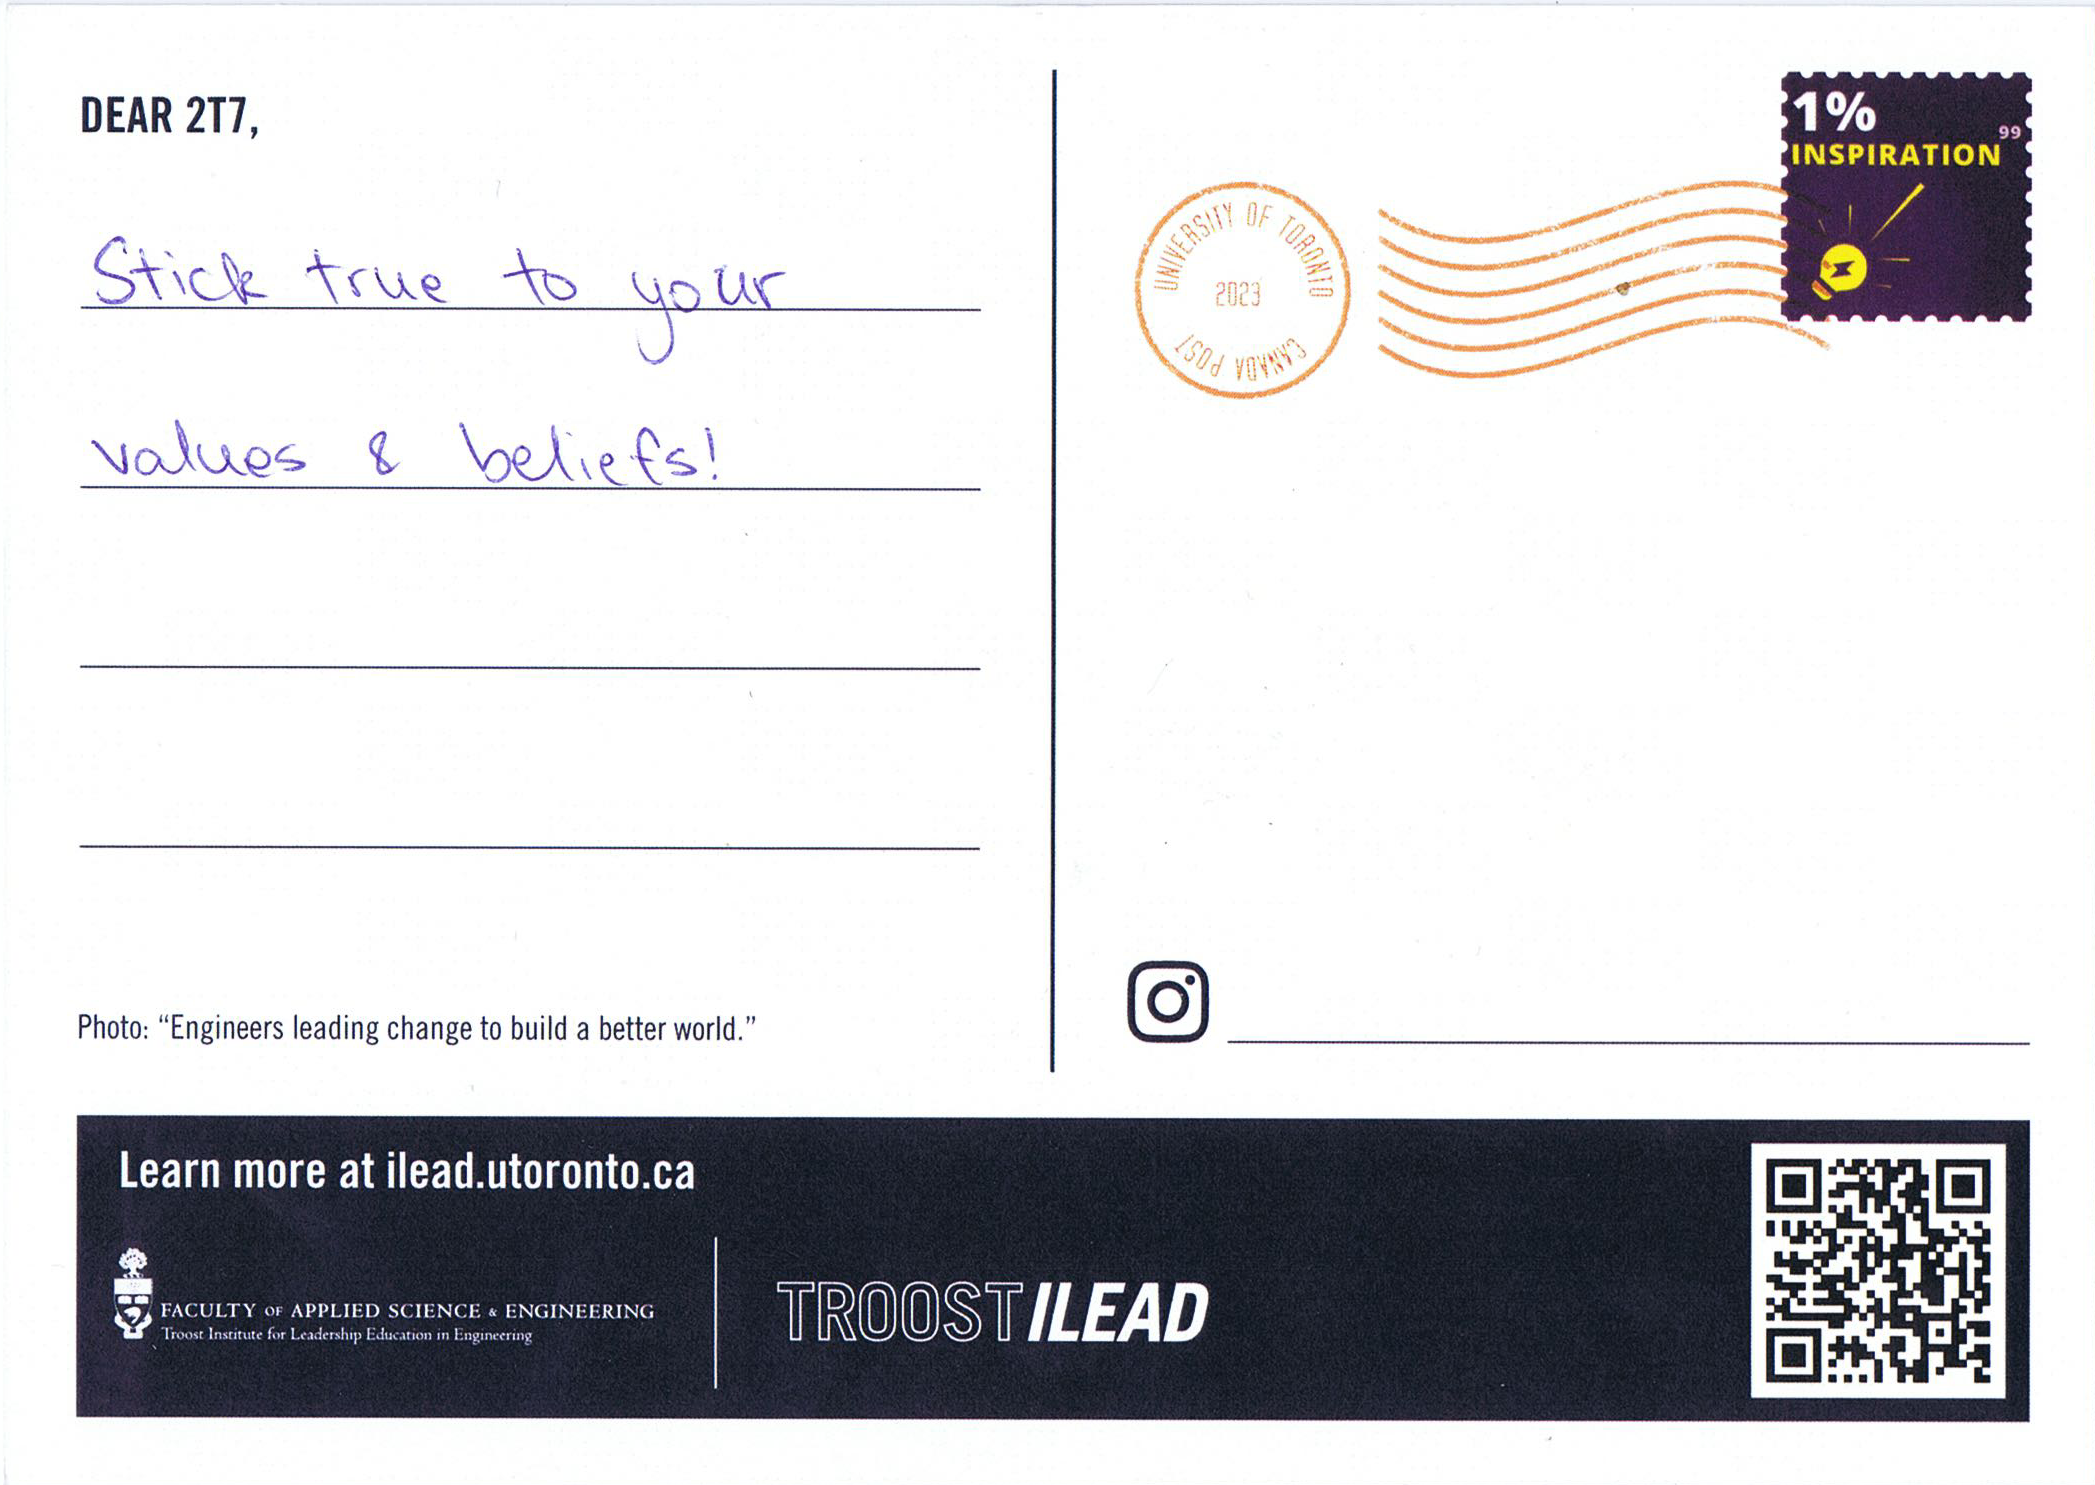 DEAR 2T7,
Stick true to your
values & beliefs!
Photo: “Engineers leading change to build a better world.”
1%
99
INSPIRATION
UNIVERSITY OF TORONTO
2023
CANADA POST
Learn more at ilead.utoronto.ca
FACULTY OF APPLIED SCIENCE & ENGINEERING
Troost Institute for Leadership Education in Engineering
TROOST ILEAD